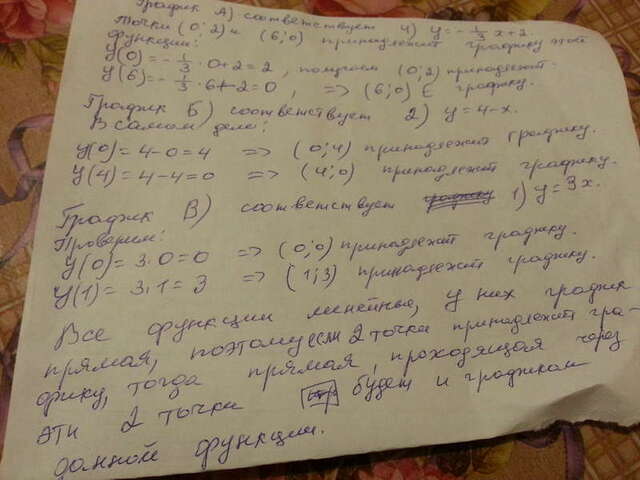 График А) соответствует 4) y = -1/3 x + 2
Точки (0; 2) и (6; 0) принадлежат графику этой
функции:
y(0) = -1/3 · 0 + 2 = 2, получим (0; 2) принадлежит.
y(6) = -1/3 · 6 + 2 = 0, => (6; 0) ∈ графику.
График Б) соответствует 2) y = 4 - x.
В самом деле:
y(0) = 4 - 0 = 4 => (0; 4) принадлежит графику.
y(4) = 4 - 4 = 0 => (4; 0) принадлежит графику.
График В) соответствует 1) y = 3x.
Проверим:
y(0) = 3·0 = 0 => (0; 0) принадлежит графику.
y(1) = 3·1 = 3 => (1; 3) принадлежит графику.
Все функции линейные, у них график
прямая, поэтому если 2 точки принадлежат гра-
фику, тогда прямая, проходящая через
эти 2 точки будет и графиком
данной функции.